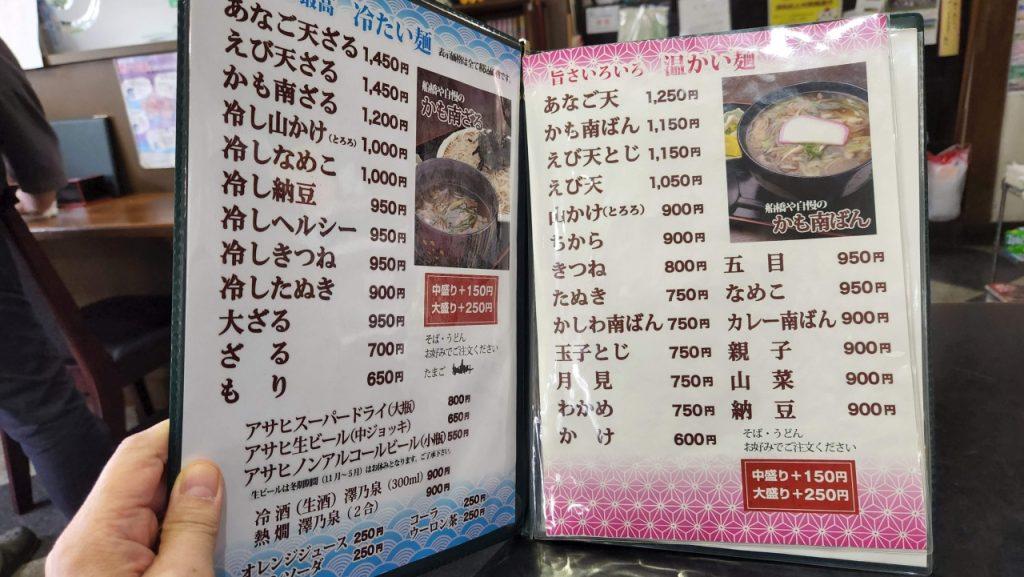 最高 冷たい麺
表示価格は全て税込価格です。
あなご天ざる 1,450円
えび天ざる 1,450円
かも南ざる 1,200円
冷し山かけ(とろろ) 1,000円
冷しなめこ 1,000円
冷し納豆 950円
冷しヘルシー 950円
冷しきつね 950円
冷したぬき 900円
大ざる 950円
ざる 700円
もり 650円
船橋や自慢の
かも南ざる
中盛り+150円
大盛り+250円
そば・うどん
お好みでご注文ください
たまご
アサヒスーパードライ(大瓶) 800円
アサヒ生ビール(中ジョッキ) 650円
アサヒノンアルコールビール(小瓶) 550円
生ビールは冬期期間(11月〜5月)はお休みとなります。ご了承下さい。
冷酒(生酒)澤乃泉(300ml) 900円
熱燗 澤乃泉(2合) 900円
オレンジジュース 250円
ソーダ 250円
コーラ 250円
ウーロン茶 250円
旨さいろいろ 温かい麺
あなご天 1,250円
かも南ばん 1,150円
えび天とじ 1,150円
えび天 1,050円
山かけ(とろろ) 900円
ちから 900円
きつね 800円
たぬき 750円
かしわ南ばん 750円
玉子とじ 750円
月見 750円
わかめ 750円
かけ 600円
船橋や自慢の
かも南ばん
五目 950円
なめこ 950円
カレー南ばん 900円
親子 900円
山菜 900円
納豆 900円
そば・うどん
お好みでご注文ください
中盛り+150円
大盛り+250円